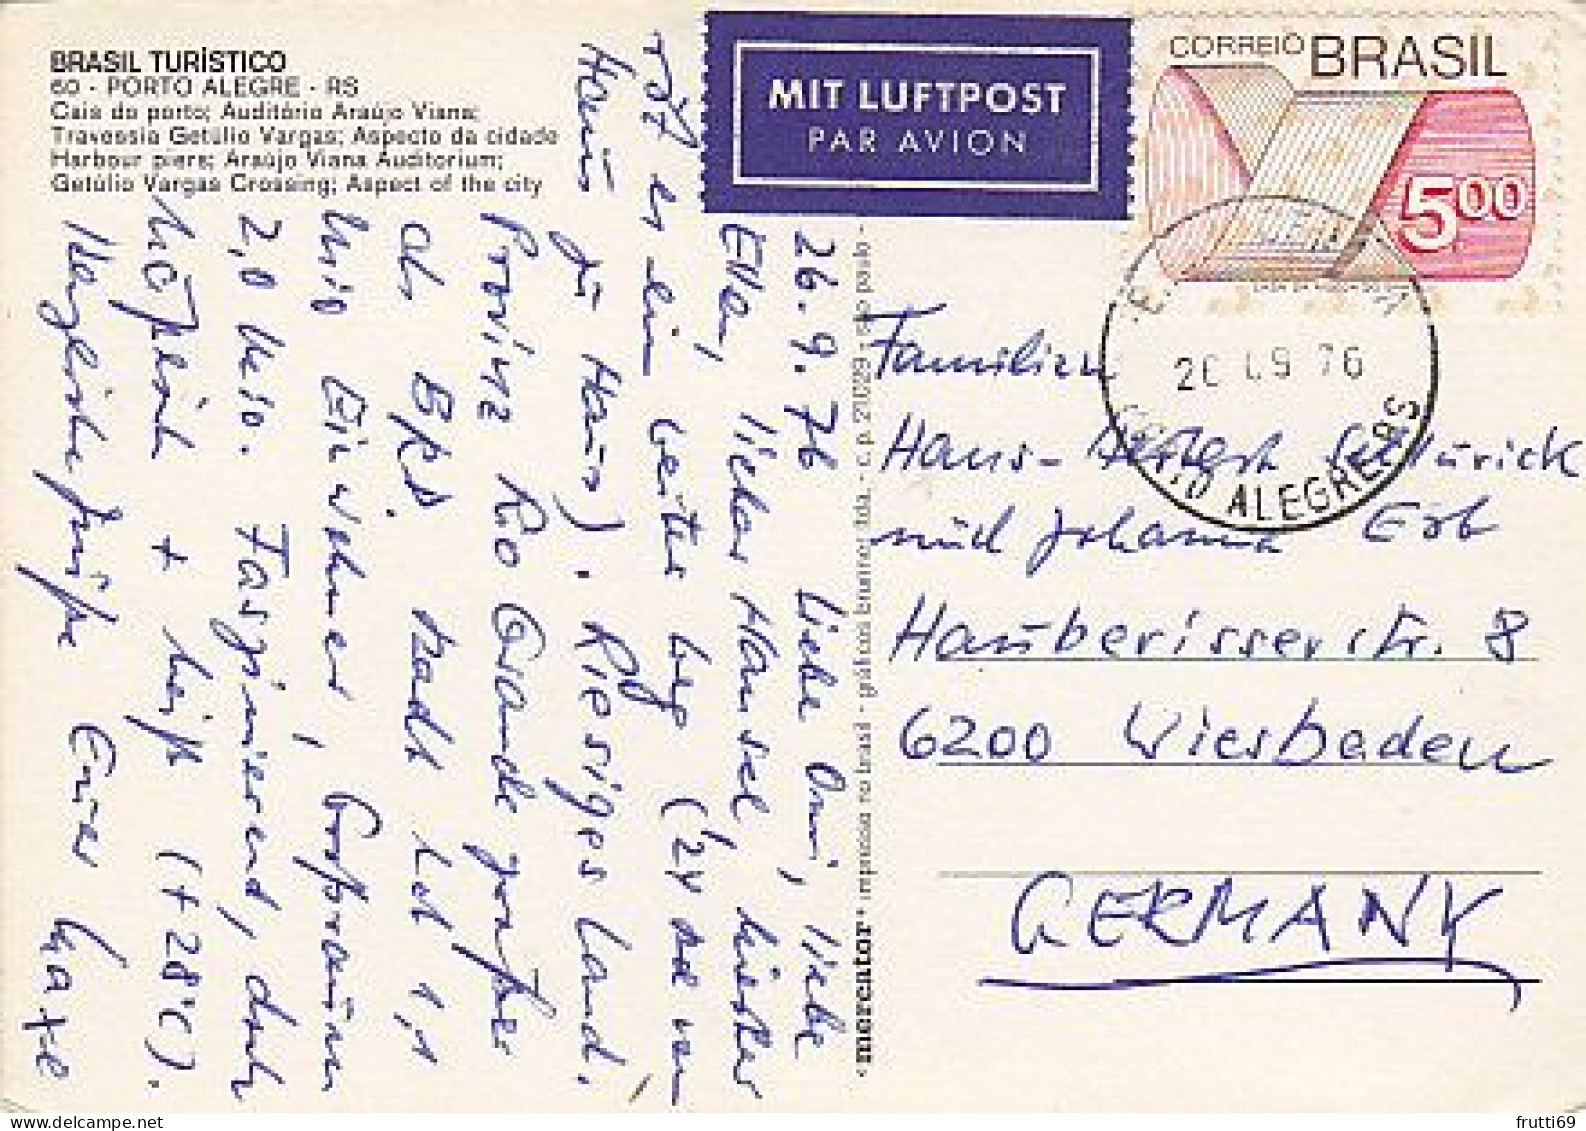 BRASIL TURÍSTICO
60 - PORTO ALEGRE - RS
Cais do porto; Auditório Araújo Viana;
Travessia Getúlio Vargas; Aspecto da cidade
Harbour piers; Araújo Viana Auditorium;
Getúlio Vargas Crossing; Aspect of the city
MIT LUFTPOST
PAR AVION
CORREIO BRASIL
5,00
20 09 76
PORTO ALEGRE-RS
26.9.76 Liebe Omi, liebe
Ellen, lieber Hansel,
es ein weiter Weg (24 Std von
Haus zu Haus). Riesiges Land.
Provinz Rio Grande größer
als BRD. Stadt hat 1,1
Mio Einwohner, Großraum
2,0 Mio. Faszinierend, doch
+ heiß (+28°C).
Herzliche Grüße Euer
«mercator» impressa no brasil - gráficos brunner ltda. - c.p. 21029 - são paulo -
Familien
Hans- Schürick
und Johanna Erb
Hauberisserstr. 8
6200 Wiesbaden
GERMANY
frutti69